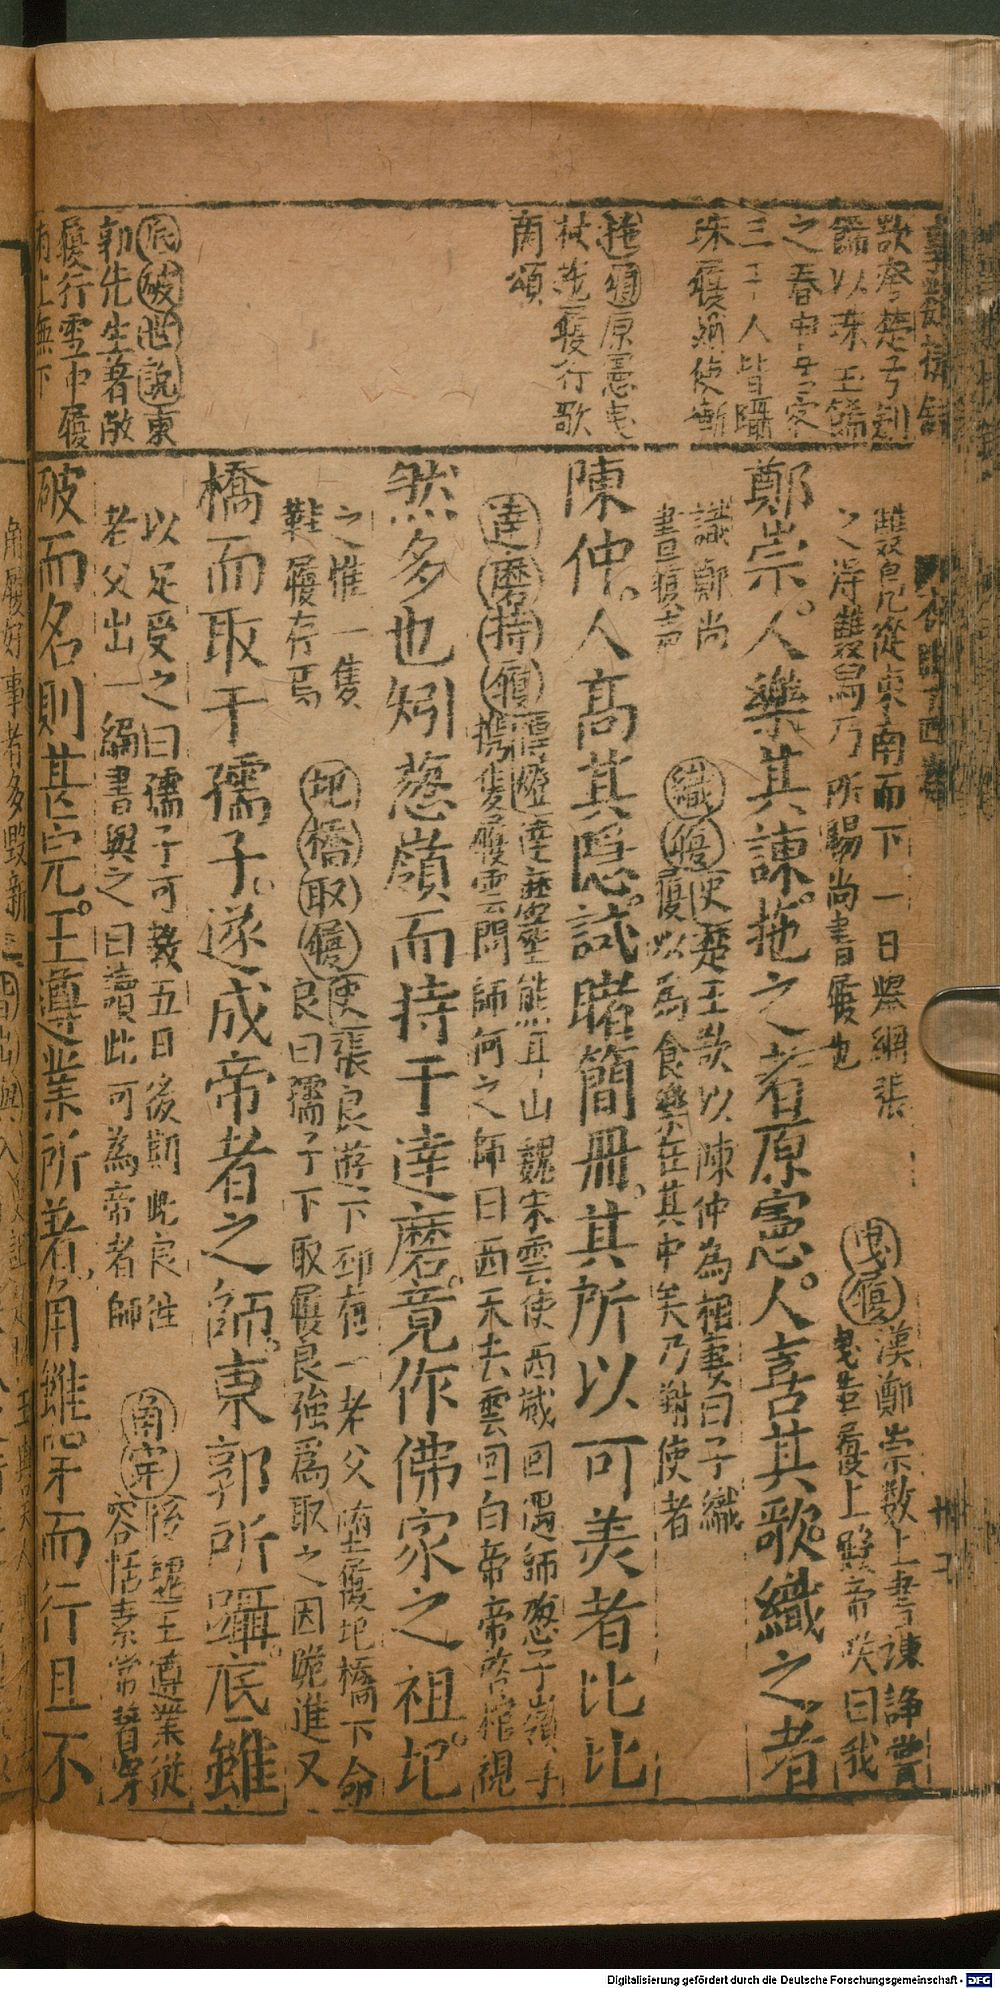 欲夸楚
飾以珠玉簪
之春申君客
三千人皆躡
珠履趙使慚
拖履原憲曳
杖拖履行歌
商頌
底破世說東
郭先生著敝
履行雪中履
有上無下
雙鳧從東南而下一日爆網張
之得雙舄乃所賜尚書履也
曳履漢鄭崇數上書諫諍嘗
曳革履上殿帝笑曰我
鄭崇人樂其諫拖之者原憲人喜其歌織之者
識鄭尚
書履声
織履使楚王欲以陳仲為相妻曰子織
履以為食樂在其中矣乃謝使者
陳仲人高其隱試睹簡冊其所以可羨者比比
達磨持履傳燈達磨塟熊耳山魏宋雲使西域回遇師葱子嶺手
携隻履雲問師何之師曰西天去雲回白帝帝啓棺視
然多也矧葱嶺而持于達磨竟作佛家之祖圯
之惟一隻
鞋履存焉
圯橋取履使張良遊下邳有一老父堕履圯橋下命
良曰孺子下取履良強為取之因跪進又
橋而取于孺子遂成帝者之師東郭所躡底雖
以足受之曰孺子可教五日後期此良往
老父出一編書與之曰讀此可為帝者師
角穿後魏王遵業從
容恬素常著穿
破而名則甚完王遵業所着角雖穿而行且不
角履好事者多毀新
Digitalisierung gefördert durch die Deutsche Forschungsgemeinschaft - DFG